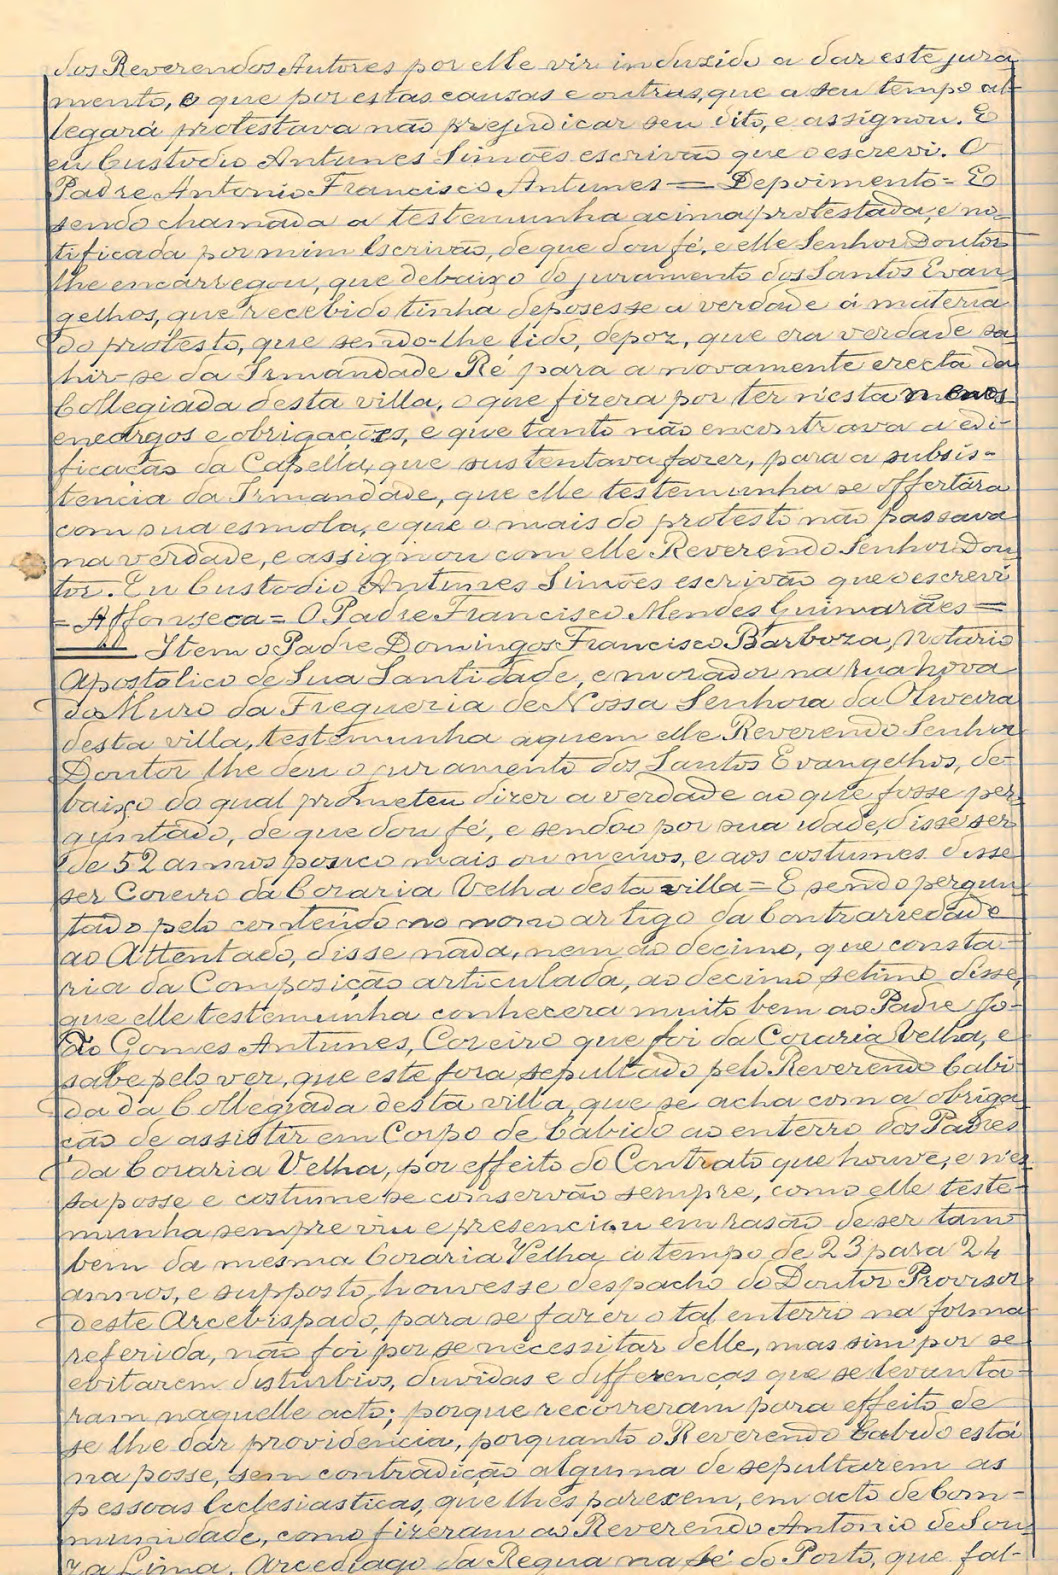 dos Reverendos Autores por elle vir induzido a dar este jura-
mento, e que por estas causas e outras, que a seu tempo al-
legará protestava não prejudicar seu dito, e assignou. E
eu Custodio Antunes Simões escrivão que o escrevi. O
Padre Antonio Francisco Antunes = Depoimento = E
sendo chamada a testemunha acima protestada, e no-
tificada por mim Escrivão, de que dou fé, e elle Senhor Doutor
lhe encarregou, que debaixo do juramento dos Santos Evan
gelhos, que recebido tinha deposesse a verdade á materia
do protesto, que sendo-lhe lido, depoz, que era verdade sa-
hir-se da Irmandade Ré para a novamente erecta da
Collegiada desta villa, o que fizera por ter n'esta menos
encargos e obrigações, e que tanto não encontrava a edi-
ficação da Capella, que sustentava fazer, para a subsis-
tencia da Irmandade, que elle testemunha se offertára
com sua esmola, e que o mais do protesto não passava
na verdade, e assignou com elle Reverendo Senhor Dou
tor. Eu Custodio Antunes Simões escrivão que o escrevi
= Affonseca = O Padre Francisco Mendes Guimarães =
Item o Padre Domingos Francisco Barboza, Notario
Apostolico de Sua Santidade, e morador na Rua Nova
do Muro da Fregueria de Nossa Senhora da Oliveira
desta villa, testemunha aquem elle Reverendo Senhor
Doutor lhe deu o juramento dos Santos Evangelhos, de-
baixo do qual prometeu dizer a verdade ao que fosse per-
guntado, de que dou fé, e sendo por sua idade, disse ser
de 52 annos pouco mais ou menos, e aos costumes disse
ser Coreiro da Coraria Velha desta villa = E sendo pergun-
tado pelo conteúdo no nono artigo da Contrariedade
ao Attentado, disse nada, nem ao decimo, que consta-
ria da Composição articulada, ao decimo setimo disse,
que elle testemunha conhecera muito bem ao Padre Jo-
ão Gomes Antunes, Coreiro que foi da Coraria Velha, e
sabe pelo ver, que este fora sepultado pelo Reverendo Cabi-
do da Collegiada desta villa, que se acha com a obriga-
ção de assistir em Corpo de Cabido ao enterro dos Padres
da Coraria Velha, por effeito do Contrato que houve, e n'es
sa posse e costume se conservão sempre, como elle teste-
munha sempre viu e presenciou em rasão de ser tam
bem da mesma Coraria Velha á tempo de 23 para 24
annos, e supposto, houvesse despacho do Doutor Provisor
deste Arcebispado, para se fazer o tal enterro na forma
referida, não foi por se necessitar delle, mas sim por se
evitarem disturbios, duvidas e differenças que se levanta-
ram naquelle acto; porque recorreram para effeito de
se lhe dar providencia, porquanto o Reverendo Cabido está
na posse, sem contradição alguma de sepultarem as
pessoas Ecclesiasticas, que lhes parecem, em acto de Com-
munidade, como fizeram ao Reverendo Antonio de Sou-
za Lima, Arcediago da Regua na Sé do Porto, que fal-